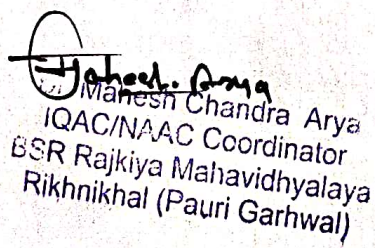 Mahesh Chandra Arya
IQAC/NAAC Coordinator
BSR Rajkiya Mahavidhyalaya
Rikhnikhal (Pauri Garhwal)